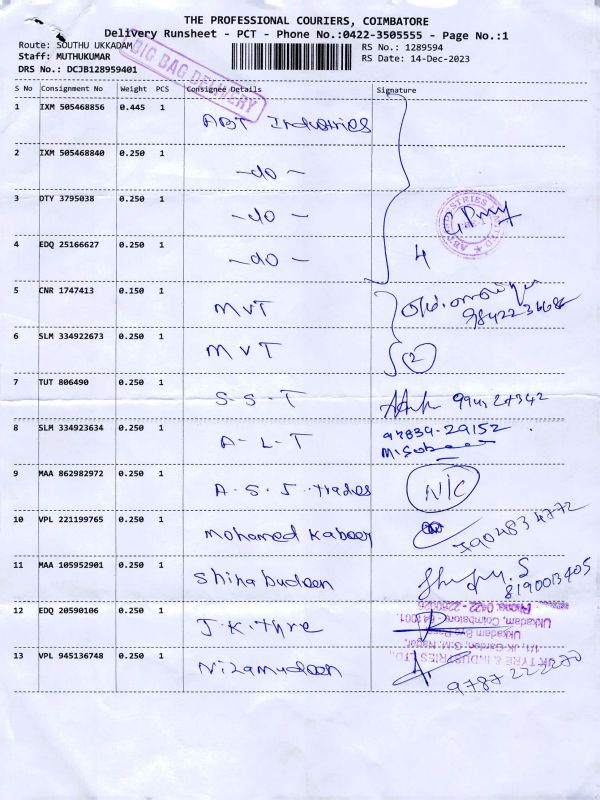 THE PROFESSIONAL COURIERS, COIMBATORE
Delivery Runsheet - PCT - Phone No.:0422-3505555 - Page No.:1
Route: SOUTHU UKKADAM
RS No.: 1289594
Staff: MUTHUKUMAR
RS Date: 14-Dec-2023
DRS No.: DCJB128959401
BIG BAG DELIVERY
S No Consignment No Weight PCS Consignee Details Signature
1 IXM 505468856 0.445 1 ABT Industries
2 IXM 505468840 0.250 1 -do-
3 DTY 3795038 0.250 1 -do-
4 EDQ 25166627 0.250 1 -do- 4
5 CNR 1747413 0.150 1 MVT
6 SLM 334922673 0.250 1 MVT 2
7 TUT 806490 0.250 1 S-S-T
8 SLM 334923634 0.250 1 A-L-T
9 MAA 862982972 0.250 1 A.S.J.trades N/C
10 VPL 221199765 0.250 1 mohamed Kabeer 7904834772
11 MAA 105952901 0.250 1 Shihabudeen 8190013405
12 EDQ 20590106 0.250 1 J.K.thre
Phone: 0422 -
Ukkadam, Coimbatore - 641001.
Ukkadam Bye Pass
1/1, JK Garden, G.M. Nagar,
JK TYRE & INDUSTRIES LTD.,
13 VPL 945136748 0.250 1 Nizamudeen 9787222270